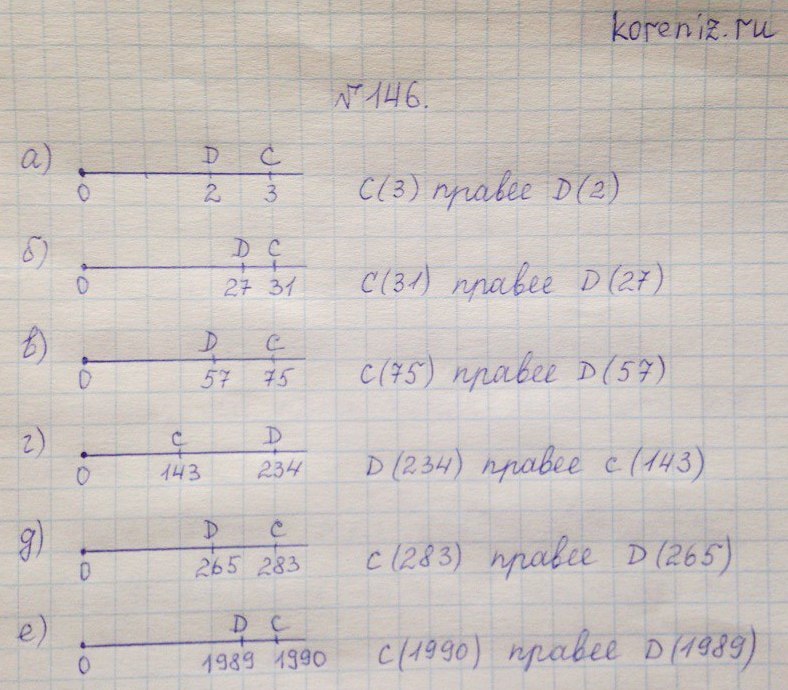 koreniz.ru
№146.
а)
D C
0 2 3
C(3) правее D(2)
б)
D C
0 27 31
C(31) правее D(27)
в)
D C
0 57 75
C(75) правее D(57)
г)
C D
0 143 234
D(234) правее C(143)
д)
D C
0 265 283
C(283) правее D(265)
е)
D C
0 1989 1990
C(1990) правее D(1989)